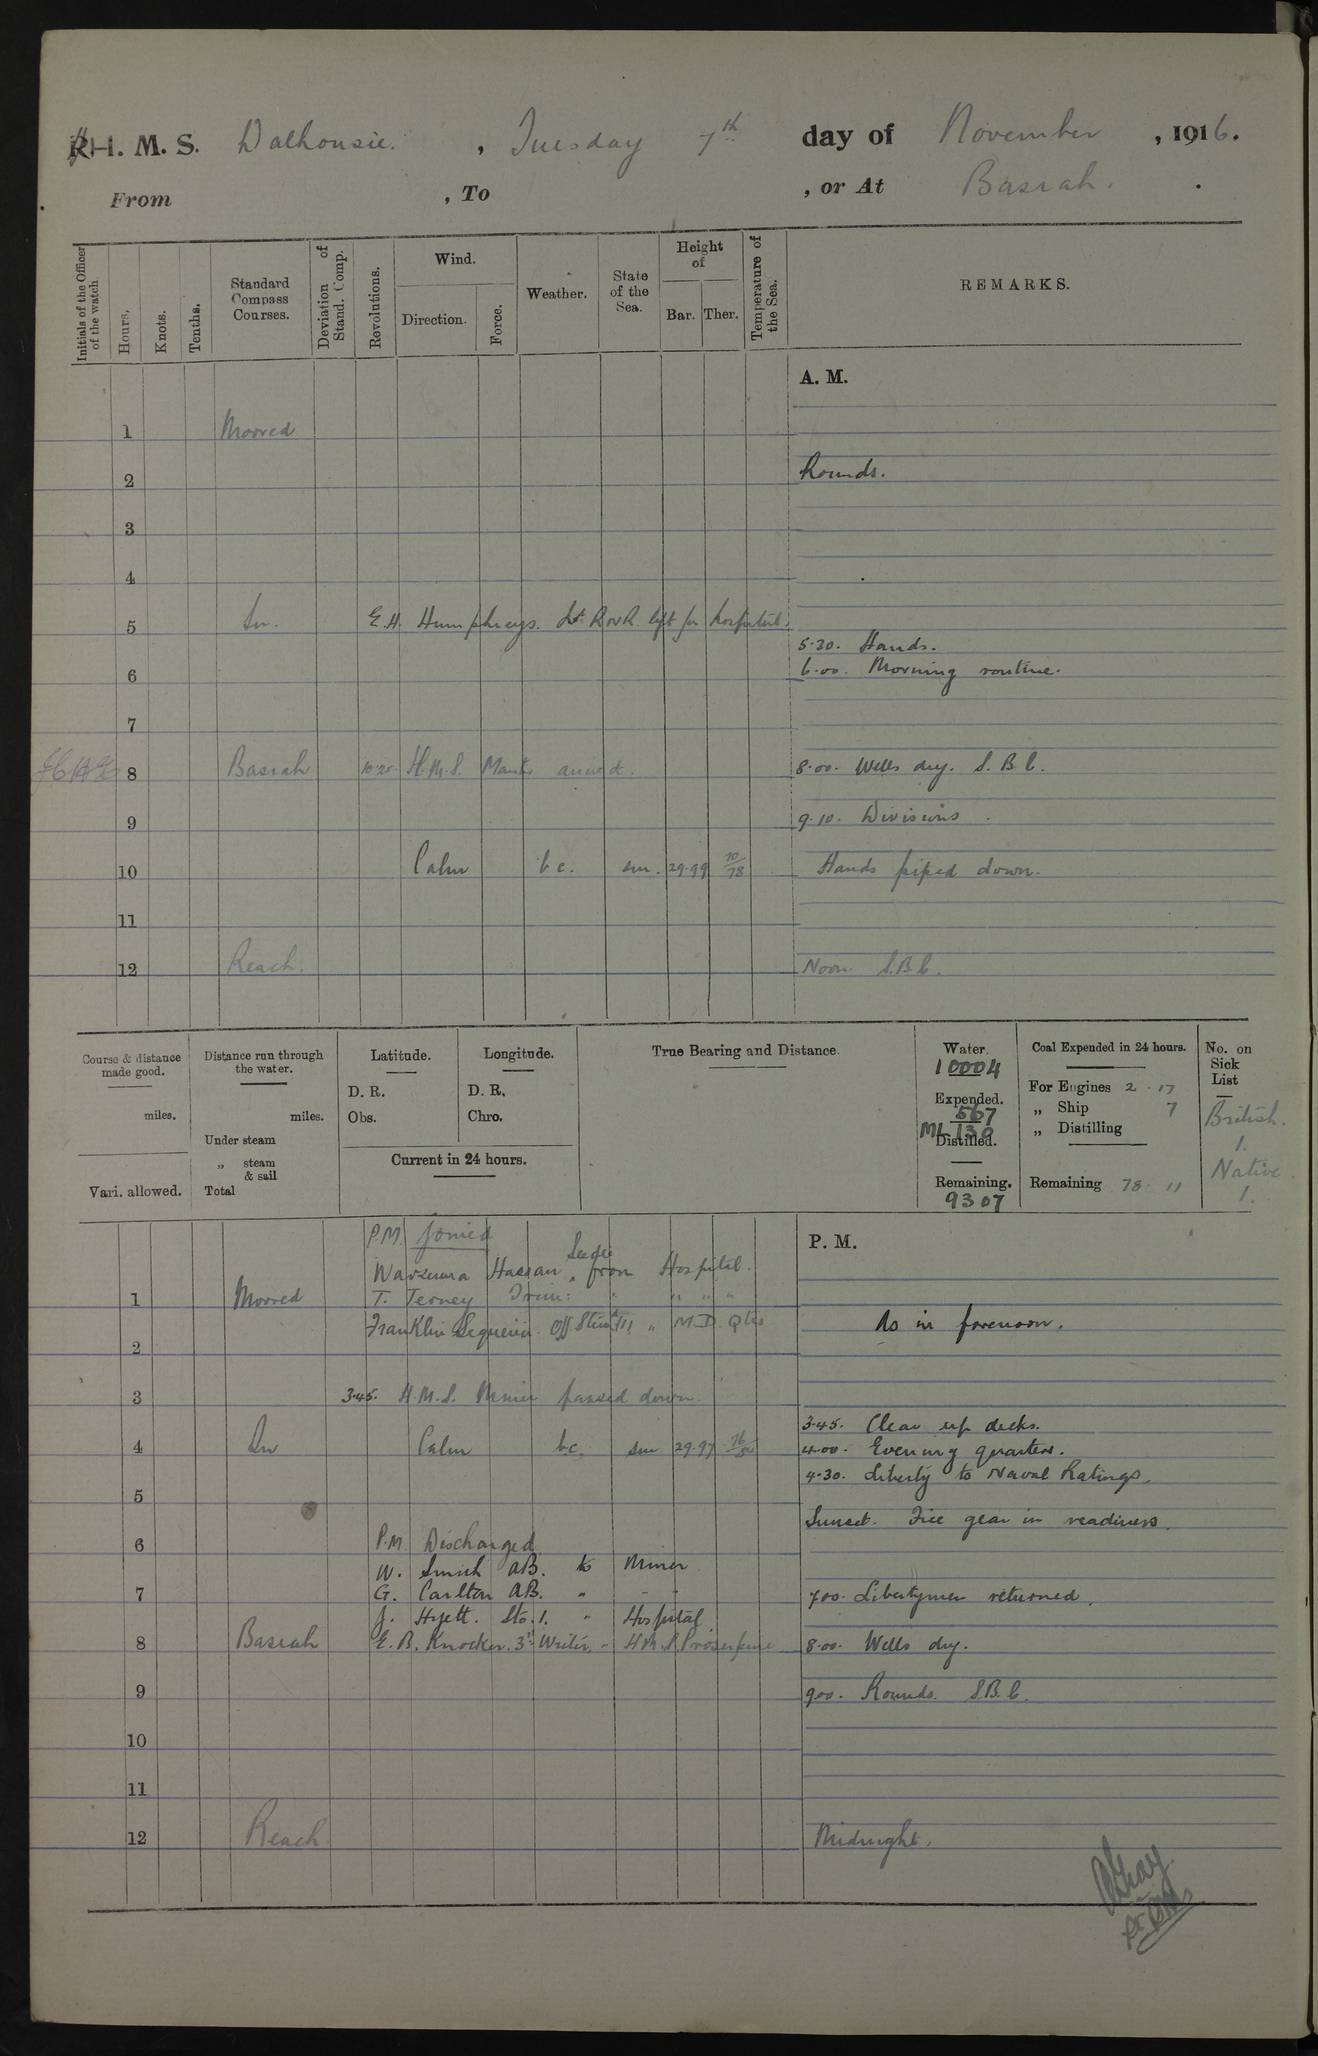 H. M. S. Dalhousie. , Tuesday 7th day of November , 1916.
From , To , or At Basrah.
Initials of the Officer of the watch
Hours.
Knots.
Tenths.
Standard Compass Courses.
Deviation of Stand. Comp.
Revolutions.
Wind.
Direction.
Force.
Weather.
State of the Sea.
Height of
Bar. Ther.
Temperature of the Sea.
REMARKS.
A. M.
1 Moored
2 Rounds.
3
4
5 In. E.H. Humphreys. Lt. R.N.R. left for hospital.
5.30. Hands.
6 6.00. Morning routine.
7
8 Basrah 10.20. H.M.S. Mantis arrived. 8.00. Wells dry. S.B.C.
9 9.10. Divisions.
10 Calm b c. sm. 29.99 70/78 Hands piped down.
11
12 Reach. Noon. S.B.C.
Course & distance made good.
miles.
Vari. allowed.
Distance run through the water.
miles.
Under steam
„ steam & sail
Total
Latitude.
D. R.
Obs.
Longitude.
D. R.
Chro.
Current in 24 hours.
True Bearing and Distance.
Water.
10004
Expended.
567
ML 130
Distilled.
Remaining.
9307
Coal Expended in 24 hours.
For Engines 2 . 17
„ Ship 7
„ Distilling
Remaining 78. 11
No. on Sick List
British.
1.
Native
1.
P.M. Joined
P. M.
Hassan Seedie from Hospital.
1 Moored T. Terney " " "
Franklin Sequeira " M.D. Qtrs As in forenoon.
2
3 3.45. H.M.S. Miner passed down.
3.45. Clear up decks.
4 In Calm b.c. sm 29.97 4.00. Evening quarters.
4.30. Liberty to Naval Ratings.
5
Sunset. Fire gear in readiness.
6 P.M. Discharged
W. Smith AB. to Miner
7 G. Carlton AB. " " " 7.00. Libertymen returned.
J. Hyett. Sto. 1. " Hospital.
8 Basrah E. B. Knocker. 3rd Writer. " H.M.S. Proserpine 8.00. Wells dry.
9 9.00. Rounds. S.B.C.
10
11
12 Reach Midnight.